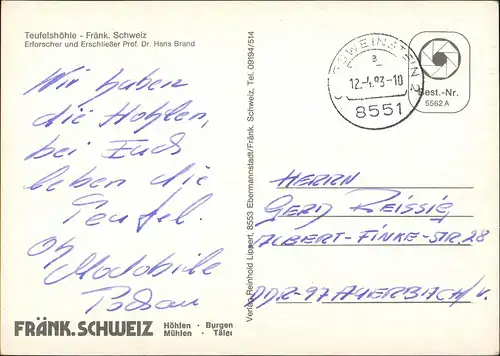 Teufelshöhle - Fränk. Schweiz
Erforscher und Erschließer Prof. Dr. Hans Brand
Wir haben
die Höhlen,
bei Euch
leben die
Teufel.
FRÄNK. SCHWEIZ
Höhlen · Burgen
Mühlen · Täler
Verlag Reinhold Lippert, 8553 Ebermannstadt/Fränk. Schweiz, Tel. 09194/514
12.-4.93-10
8551
Best.-Nr.
5562 A
HERRN
GERD REISSIG
ALBERT-FINKE-STR. 28
DDR-97 AUERBACH/V.